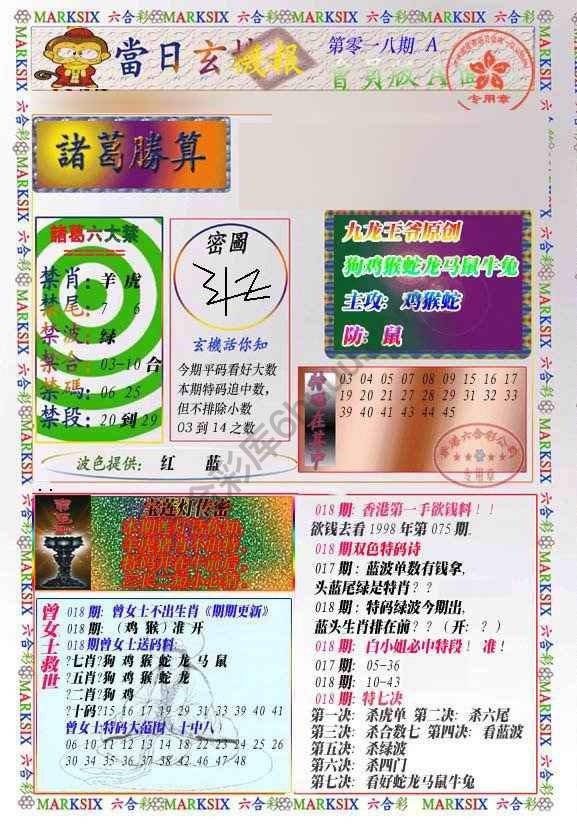 MARKSIX 六合彩 MARKSIX 六合彩 MARKSIX 六合彩 MARKSIX
當日玄機報
第零一八期 A
會員版 A 面
专用章
諸葛勝算
諸葛六大禁
禁肖:羊 虎
禁尾: 7 6
禁波: 绿
禁合:03-10 合
禁碼: 06 25
禁段: 20 到 29
密圖
玄機话你知
今期平码看好大数
本期特码追中数,
但不排除小数
03 到 14 之数
九龙王爷原创
狗鸡猴蛇龙马鼠牛兔
主攻: 鸡猴蛇
防: 鼠
特码在其中
03 04 05 07 08 09 15 16 17
19 20 21 27 28 29 31 32 33
39 40 41 43 44 45
专用章
波色提供: 红 蓝
宝莲灯传密
曾女士救世
018 期: 曾女士不出生肖《期期更新》
018 期: (鸡 猴) 准 开
018 期曾女士送码料:
?七肖?狗 鸡 猴 蛇 龙 马 鼠
?五肖?狗 鸡 猴 蛇 龙
?二肖?狗 鸡
?十码?15 16 17 19 29 31 33 39 40 41
曾女士特码大范围〔十中八〕
06 10 11 12 13 14 18 22 23 24 25 26
30 34 35 36 37 38 42 46 47 48
018 期: 香港第一手欲钱料!!
欲钱去看 1998 年第 075 期.
018 期双色特码诗
017 期: 蓝波单数有钱拿,
头蓝尾绿是特肖??
018 期: 特码绿波今期出,
蓝头生肖排在前??(开: ?)
018 期: 白小姐必中特段! 准!
017 期: 05-36
018 期: 10-43
018 期: 特七决
第一决: 杀虎单 第二决: 杀六尾
第三决: 杀合数七 第四决: 看蓝波
第五决: 杀绿波
第六决: 杀四门
第七决: 看好蛇龙马鼠牛兔
MARKSIX 六合彩 MARKSIX 六合彩 MARKSIX 六合彩 MARKSIX 六合彩